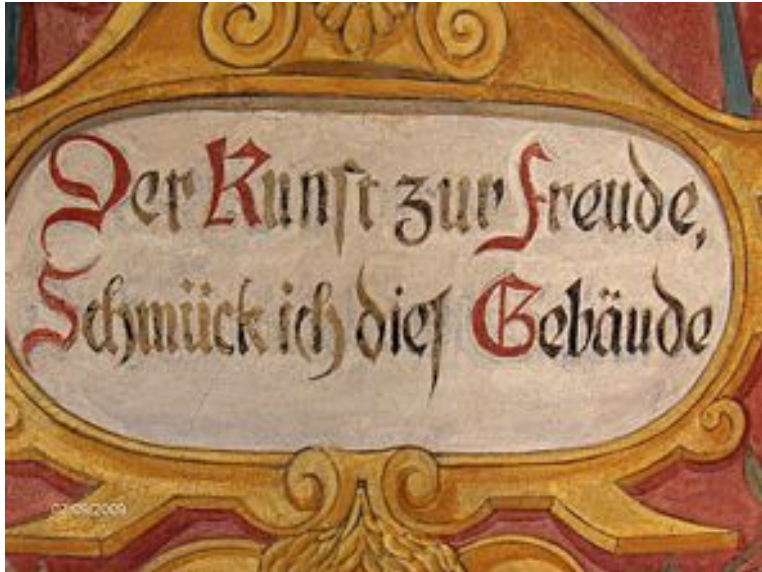 Der Kunst zur Freude,
Schmück ich dieſ Gebäude
07/09/2009